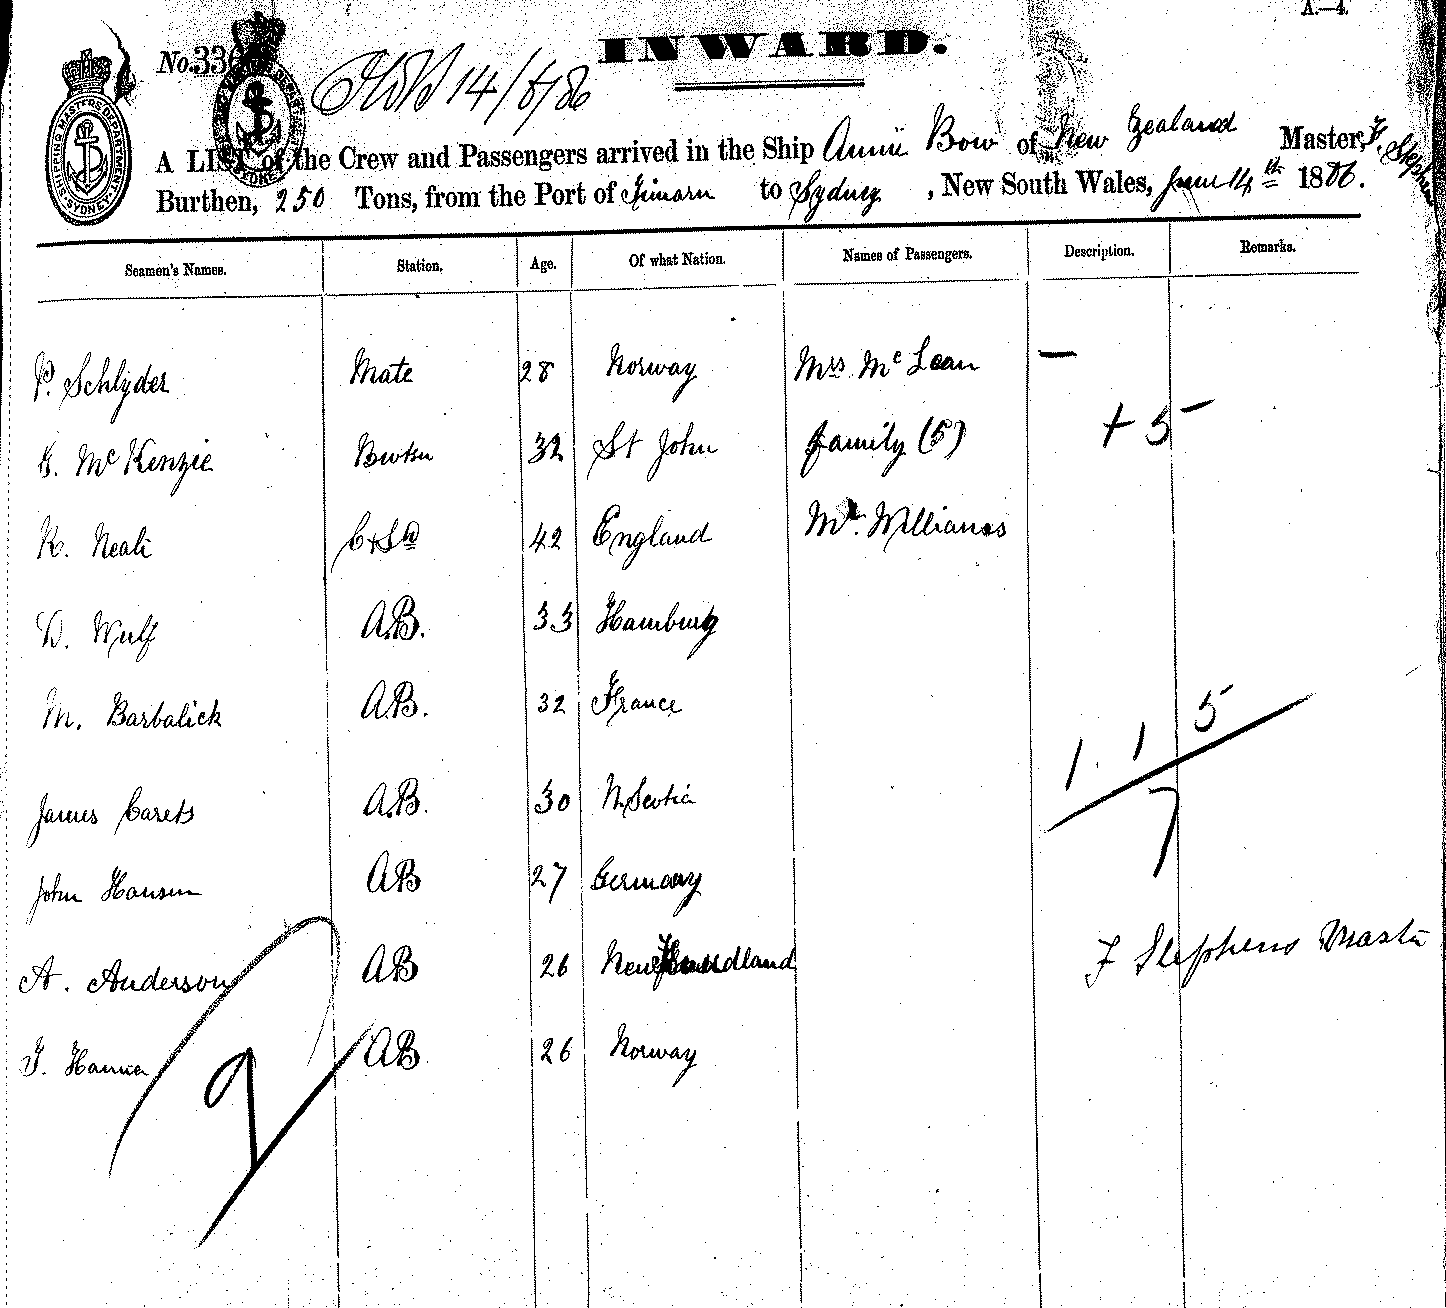 A.—4.
No. 336
INWARD.
14/6/86
SHIPPING MASTERS DEPARTMENT SYDNEY
A LIST of the Crew and Passengers arrived in the Ship Annie Bow of New Zealand Master, F. Stephens
Burthen, 250 Tons, from the Port of Timaru to Sydney, New South Wales, June 14th 1886.
Seamen's Names. Station. Age. Of what Nation. Names of Passengers. Description. Remarks.
P. Schlyder Mate 28 Norway Mrs McLean —
McKenzie 32 St John family (5) + 5
K. Neali 42 England Mr. Williams
D. Wulf A.B. 33 Hamburg
M. Barbalick A.B. 32 France
1. 1 5
James A.B. 30 N. Scotia
7
John Hansen AB 27 Germany
A. Anderson AB 26 Newfoundland
F Stephens Master
AB 26 Norway
9